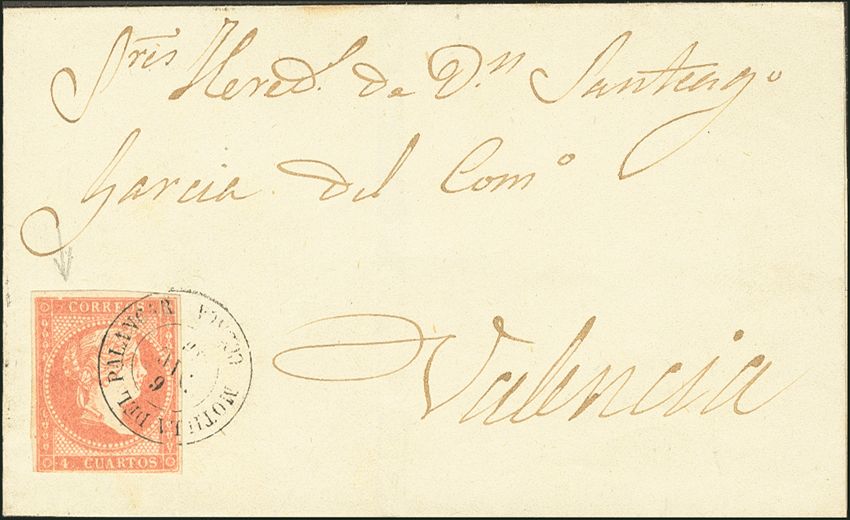 Sres Hered.s de Dn Santiago
Garcia del Como
Valencia
CORREOS
4 CUARTOS
MOTILLA DEL PALANCAR CUENCA
9